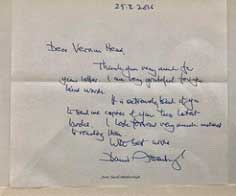 25.2.2016
Dear Vernon Head,
Thank you very much for
your letter. I am very grateful for your
kind words.
It is extraordinarily kind of you
to send me copies of your two latest
books. I look forward very much indeed
to reading them.
With best wishes
David Attenborough